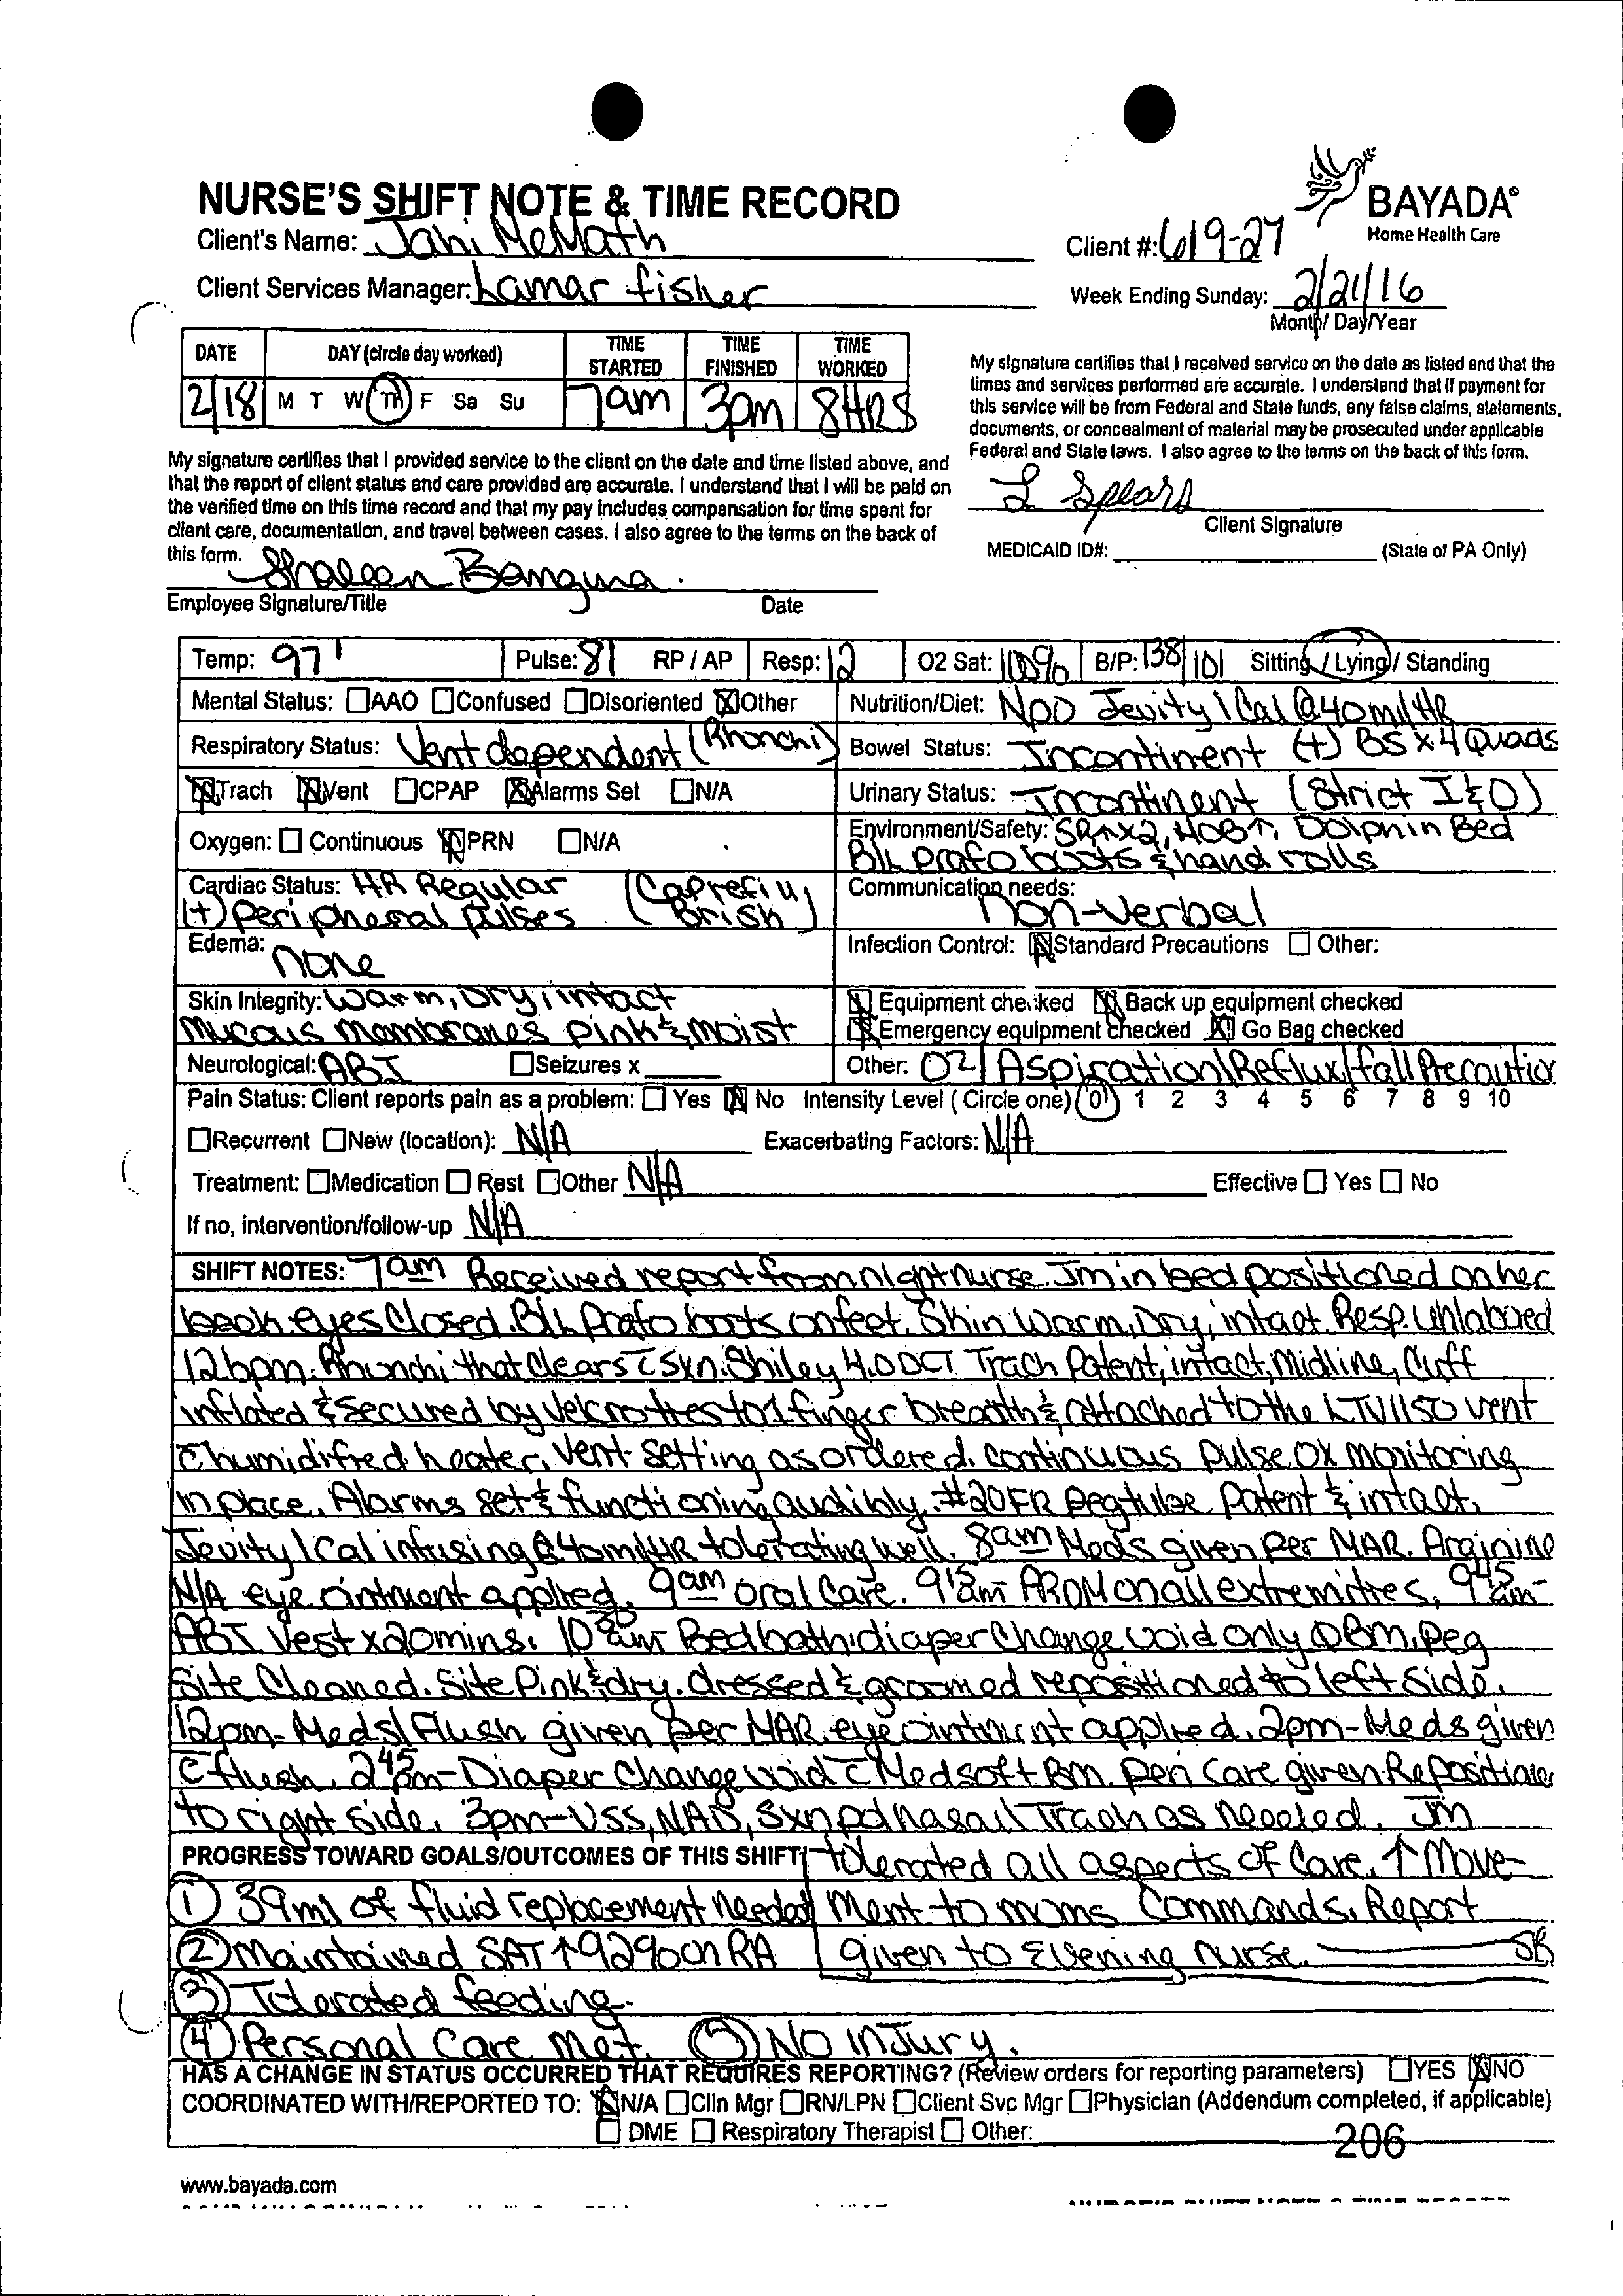 NURSE'S SHIFT NOTE & TIME RECORD
BAYADA®
Home Health Care
Client's Name: Jahi McMath
Client #: 619-27
Client Services Manager: Lamar Fisher
Week Ending Sunday: 2/21/16
Month/ Day/Year
DATE DAY (circle day worked) TIME STARTED TIME FINISHED TIME WORKED
2/18 M T W Th F Sa Su 7am 3pm 8HRS
My signature certifies that I received service on the date as listed and that the
times and services performed are accurate. I understand that if payment for
this service will be from Federal and State funds, any false claims, statements,
documents, or concealment of material may be prosecuted under applicable
Federal and State laws. I also agree to the terms on the back of this form.
L Spears
Client Signature
MEDICAID ID#: (State of PA Only)
My signature certifies that I provided service to the client on the date and time listed above, and
that the report of client status and care provided are accurate. I understand that I will be paid on
the verified time on this time record and that my pay includes compensation for time spent for
client care, documentation, and travel between cases. I also agree to the terms on the back of
this form.
Employee Signature/Title Date
Temp: 97' Pulse: 81 RP / AP Resp: 12 O2 Sat: 100% B/P: 138/101 Sitting / Lying / Standing
Mental Status: AAO Confused Disoriented Other
Nutrition/Diet: NPO Jevity 1 Cal @ 40ml/HR
Respiratory Status: Vent dependent (Rhonchi)
Bowel Status: Incontinent (+) BS x 4 Quads
Trach Vent CPAP Alarms Set N/A
Urinary Status: Incontinent (Strict I&O)
Oxygen: Continuous PRN N/A
Environment/Safety: SR↑x2, HOB↑, Dolphin Bed
B/L Prafo boots & hand rolls
Cardiac Status: HR Regular (Caprefill
(+) Peripheral pulses Brish)
Communication needs:
Non-Verbal
Edema: none
Infection Control: Standard Precautions Other:
Skin Integrity: Warm, Dry, intact
Mucous membranes pink & moist
Equipment checked Back up equipment checked
Emergency equipment checked Go Bag checked
Neurological: ABI Seizures x
Other: O2/Aspiration/Reflux/fall Precaution
Pain Status: Client reports pain as a problem: Yes No Intensity Level ( Circle one) 0 1 2 3 4 5 6 7 8 9 10
Recurrent New (location): N/A Exacerbating Factors: N/A
Treatment: Medication Rest Other N/A Effective Yes No
If no, intervention/follow-up N/A
SHIFT NOTES: 7am Received report from night nurse. Jm in bed positioned on her
back eyes Closed. B/L Prafo boots on feet. Skin warm, Dry, intact. Resp. unlabored
12bpm. Rhonchi that clears c̄ sxn. Shiley 4.0 DCT Trach Patent, intact, Midline, Cuff
inflated & secured by velcro ties to 1 finger breadth & attached to the LTV1150 vent
c̄ humidified heater. Vent setting as ordered. continuous pulse ox monitoring
in place. Alarms set & functioning audibly. #20FR Peg tube Patent & intact.
Jevity 1 Cal infusing @ 40ml/HR tolerating well. 8am Meds given per MAR. Arginine
N/A eye ointment applied. 9am oral Care. 9:15am PROM on all extremities. 9:45am-
ABI Vest x20mins. 10:30am Bed bath: diaper Change void only 0 BM. Peg
Site Cleaned. Site Pink & dry. dressed & groomed repositioned to left side.
12pm- Meds/Flush given per MAR. eye ointment applied. 2pm- Meds given
c̄ flush. 2:45pm- Diaper Change void c̄ Med soft Bm. Peri Care given. Repositioned
to right side. 3pm- VSS, NAD, Sxn'd nasal/Trach as needed. Jm
PROGRESS TOWARD GOALS/OUTCOMES OF THIS SHIFT tolerated all aspects of Care. ↑ Move-
① 39ml of fluid replacement needed ment to moms Commands. Report
② Maintained SAT ↑92% on RA given to Evening nurse. SB
③ Tolerated feeding.
④ Personal Care Met. ⑤ No injury.
HAS A CHANGE IN STATUS OCCURRED THAT REQUIRES REPORTING? (Review orders for reporting parameters) YES NO
COORDINATED WITH/REPORTED TO: N/A Clin Mgr RN/LPN Client Svc Mgr Physician (Addendum completed, if applicable)
DME Respiratory Therapist Other:
206
www.bayada.com